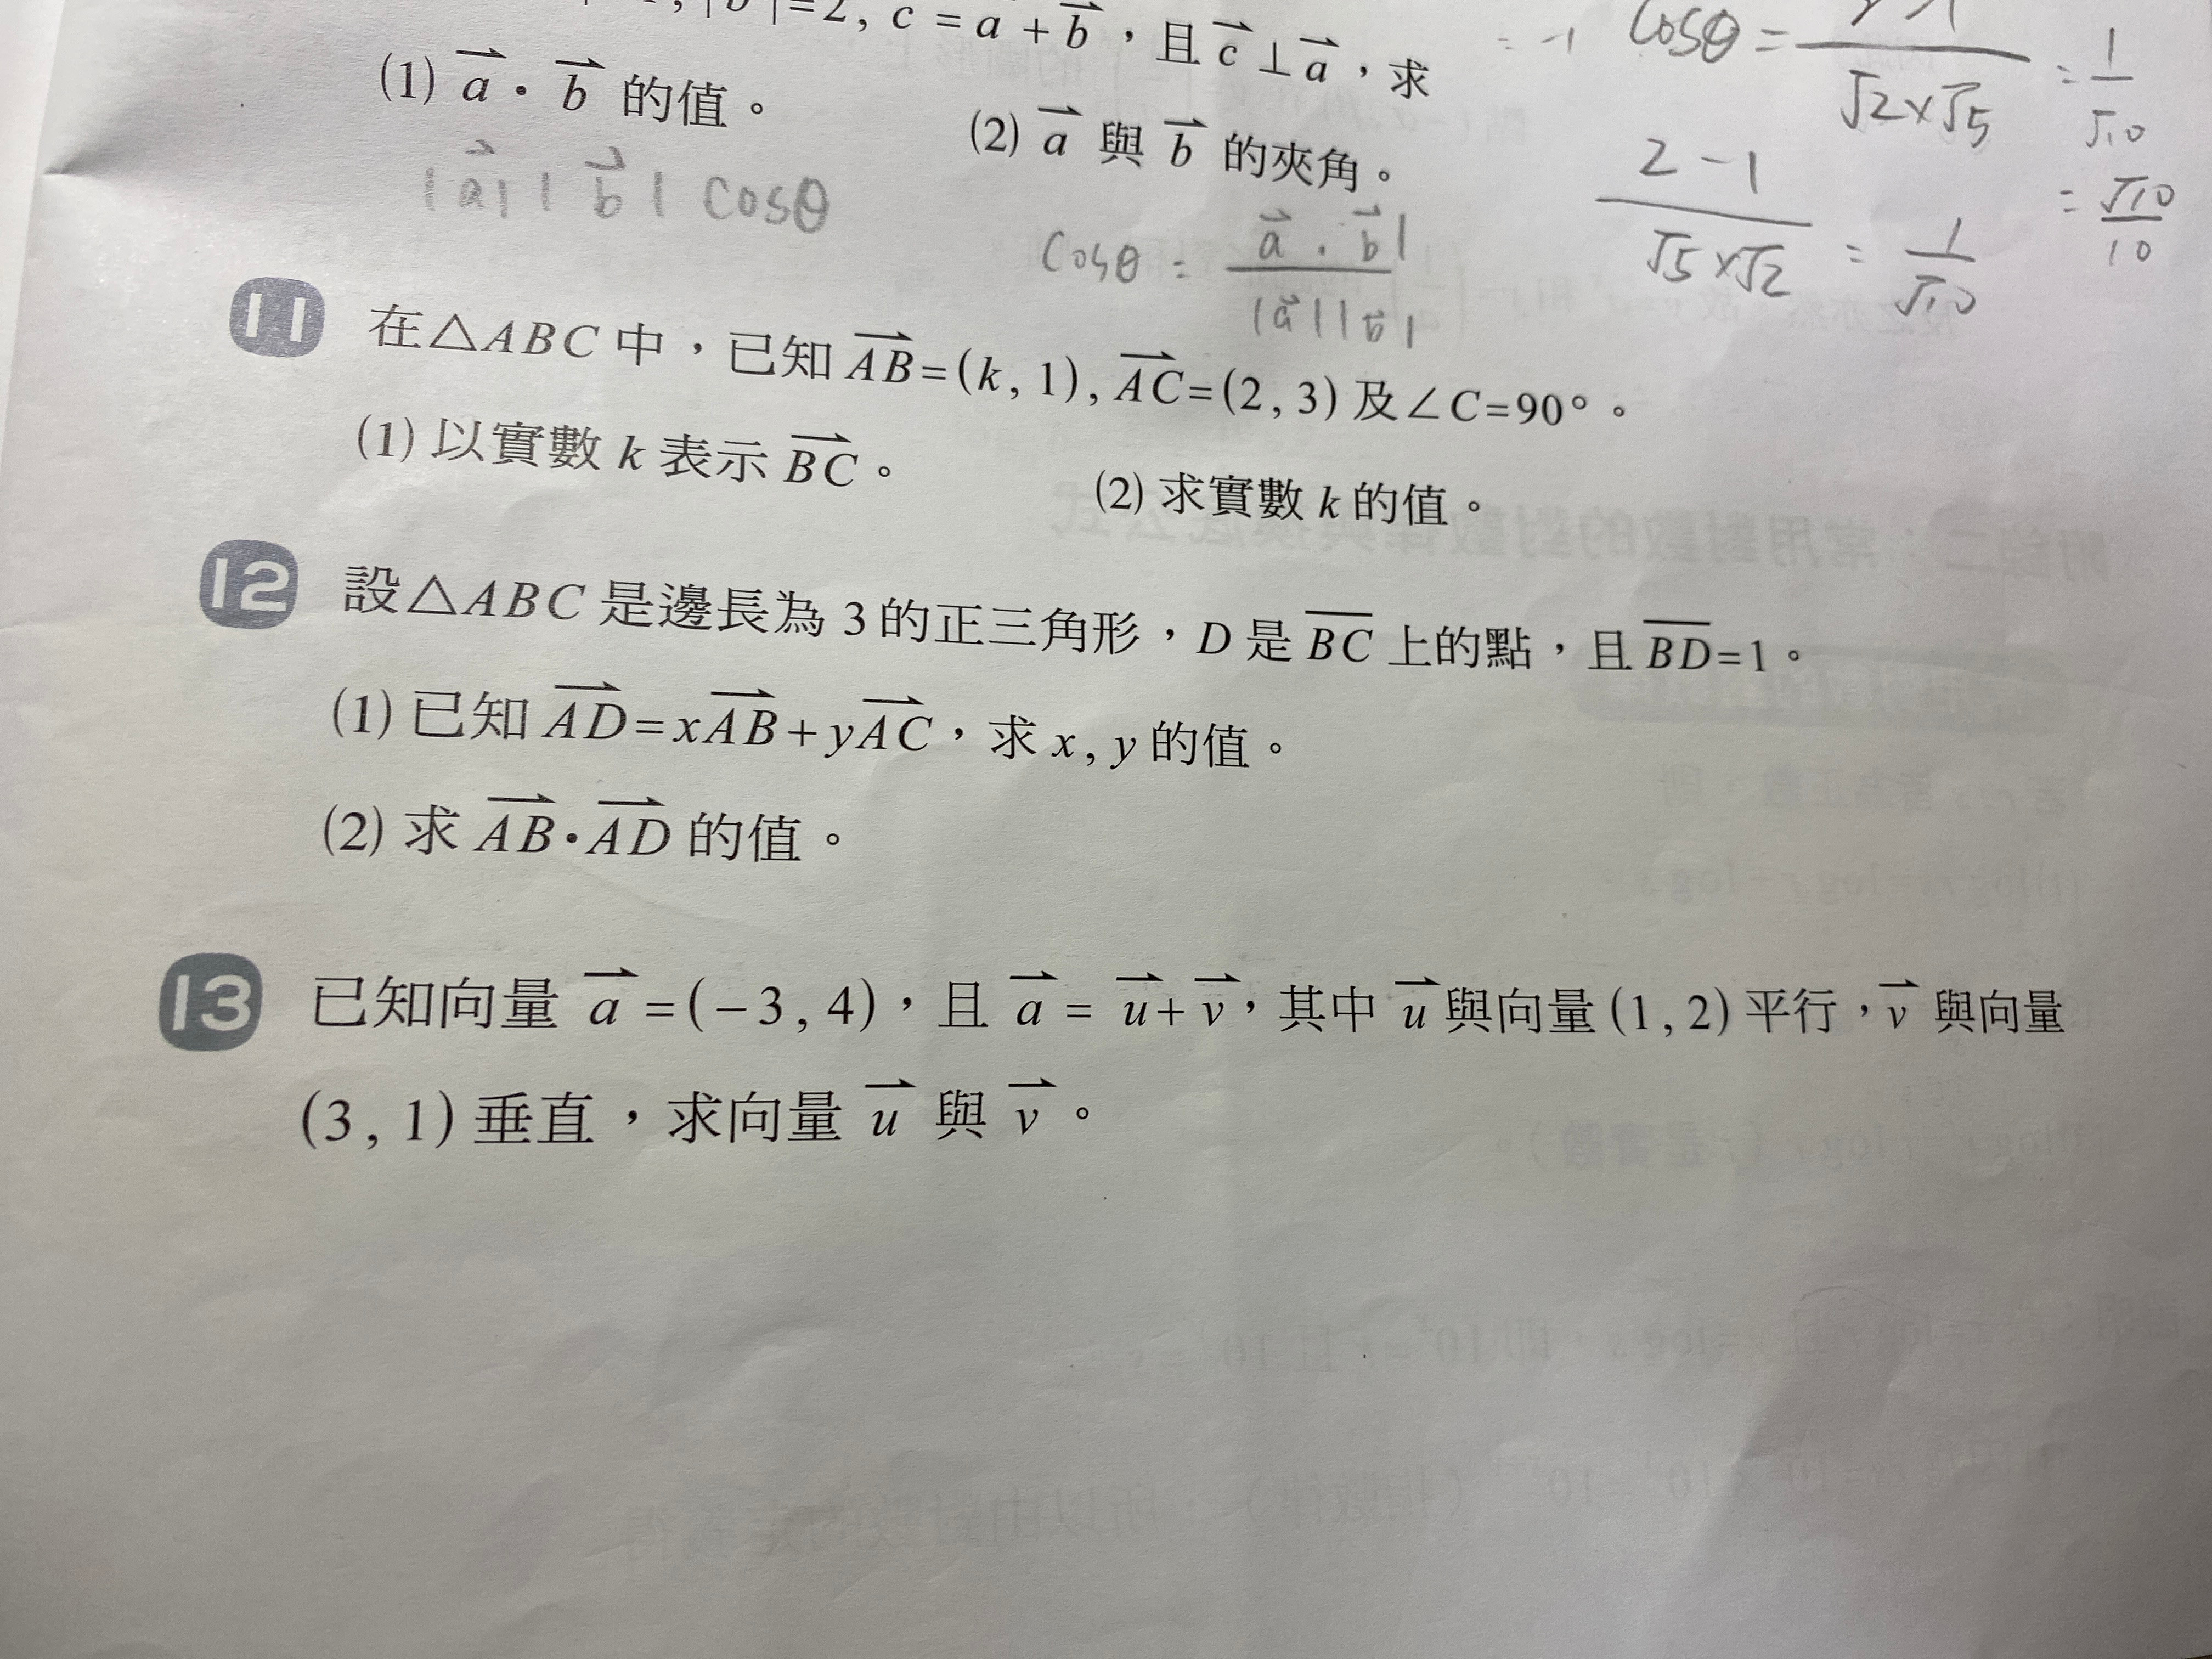 |=2, c = a + b，且 c ⊥ a，求
(1) a · b 的值。
(2) a 與 b 的夾角。
|a||b| cosθ
cosθ = a · b| / |a||b|
= -1
cosθ = / √2×√5 = 1/√10
= √10/10
2-1 / √5×√2 = 1/√10
11 在△ABC 中，已知 AB=(k, 1), AC=(2, 3) 及∠C=90°。
(1) 以實數 k 表示 BC。
(2) 求實數 k 的值。
12 設△ABC 是邊長為 3 的正三角形，D 是 BC 上的點，且 BD=1。
(1) 已知 AD=xAB+yAC，求 x, y 的值。
(2) 求 AB·AD 的值。
13 已知向量 a =(-3, 4)，且 a = u+v，其中 u 與向量 (1, 2) 平行，v 與向量
(3, 1) 垂直，求向量 u 與 v。